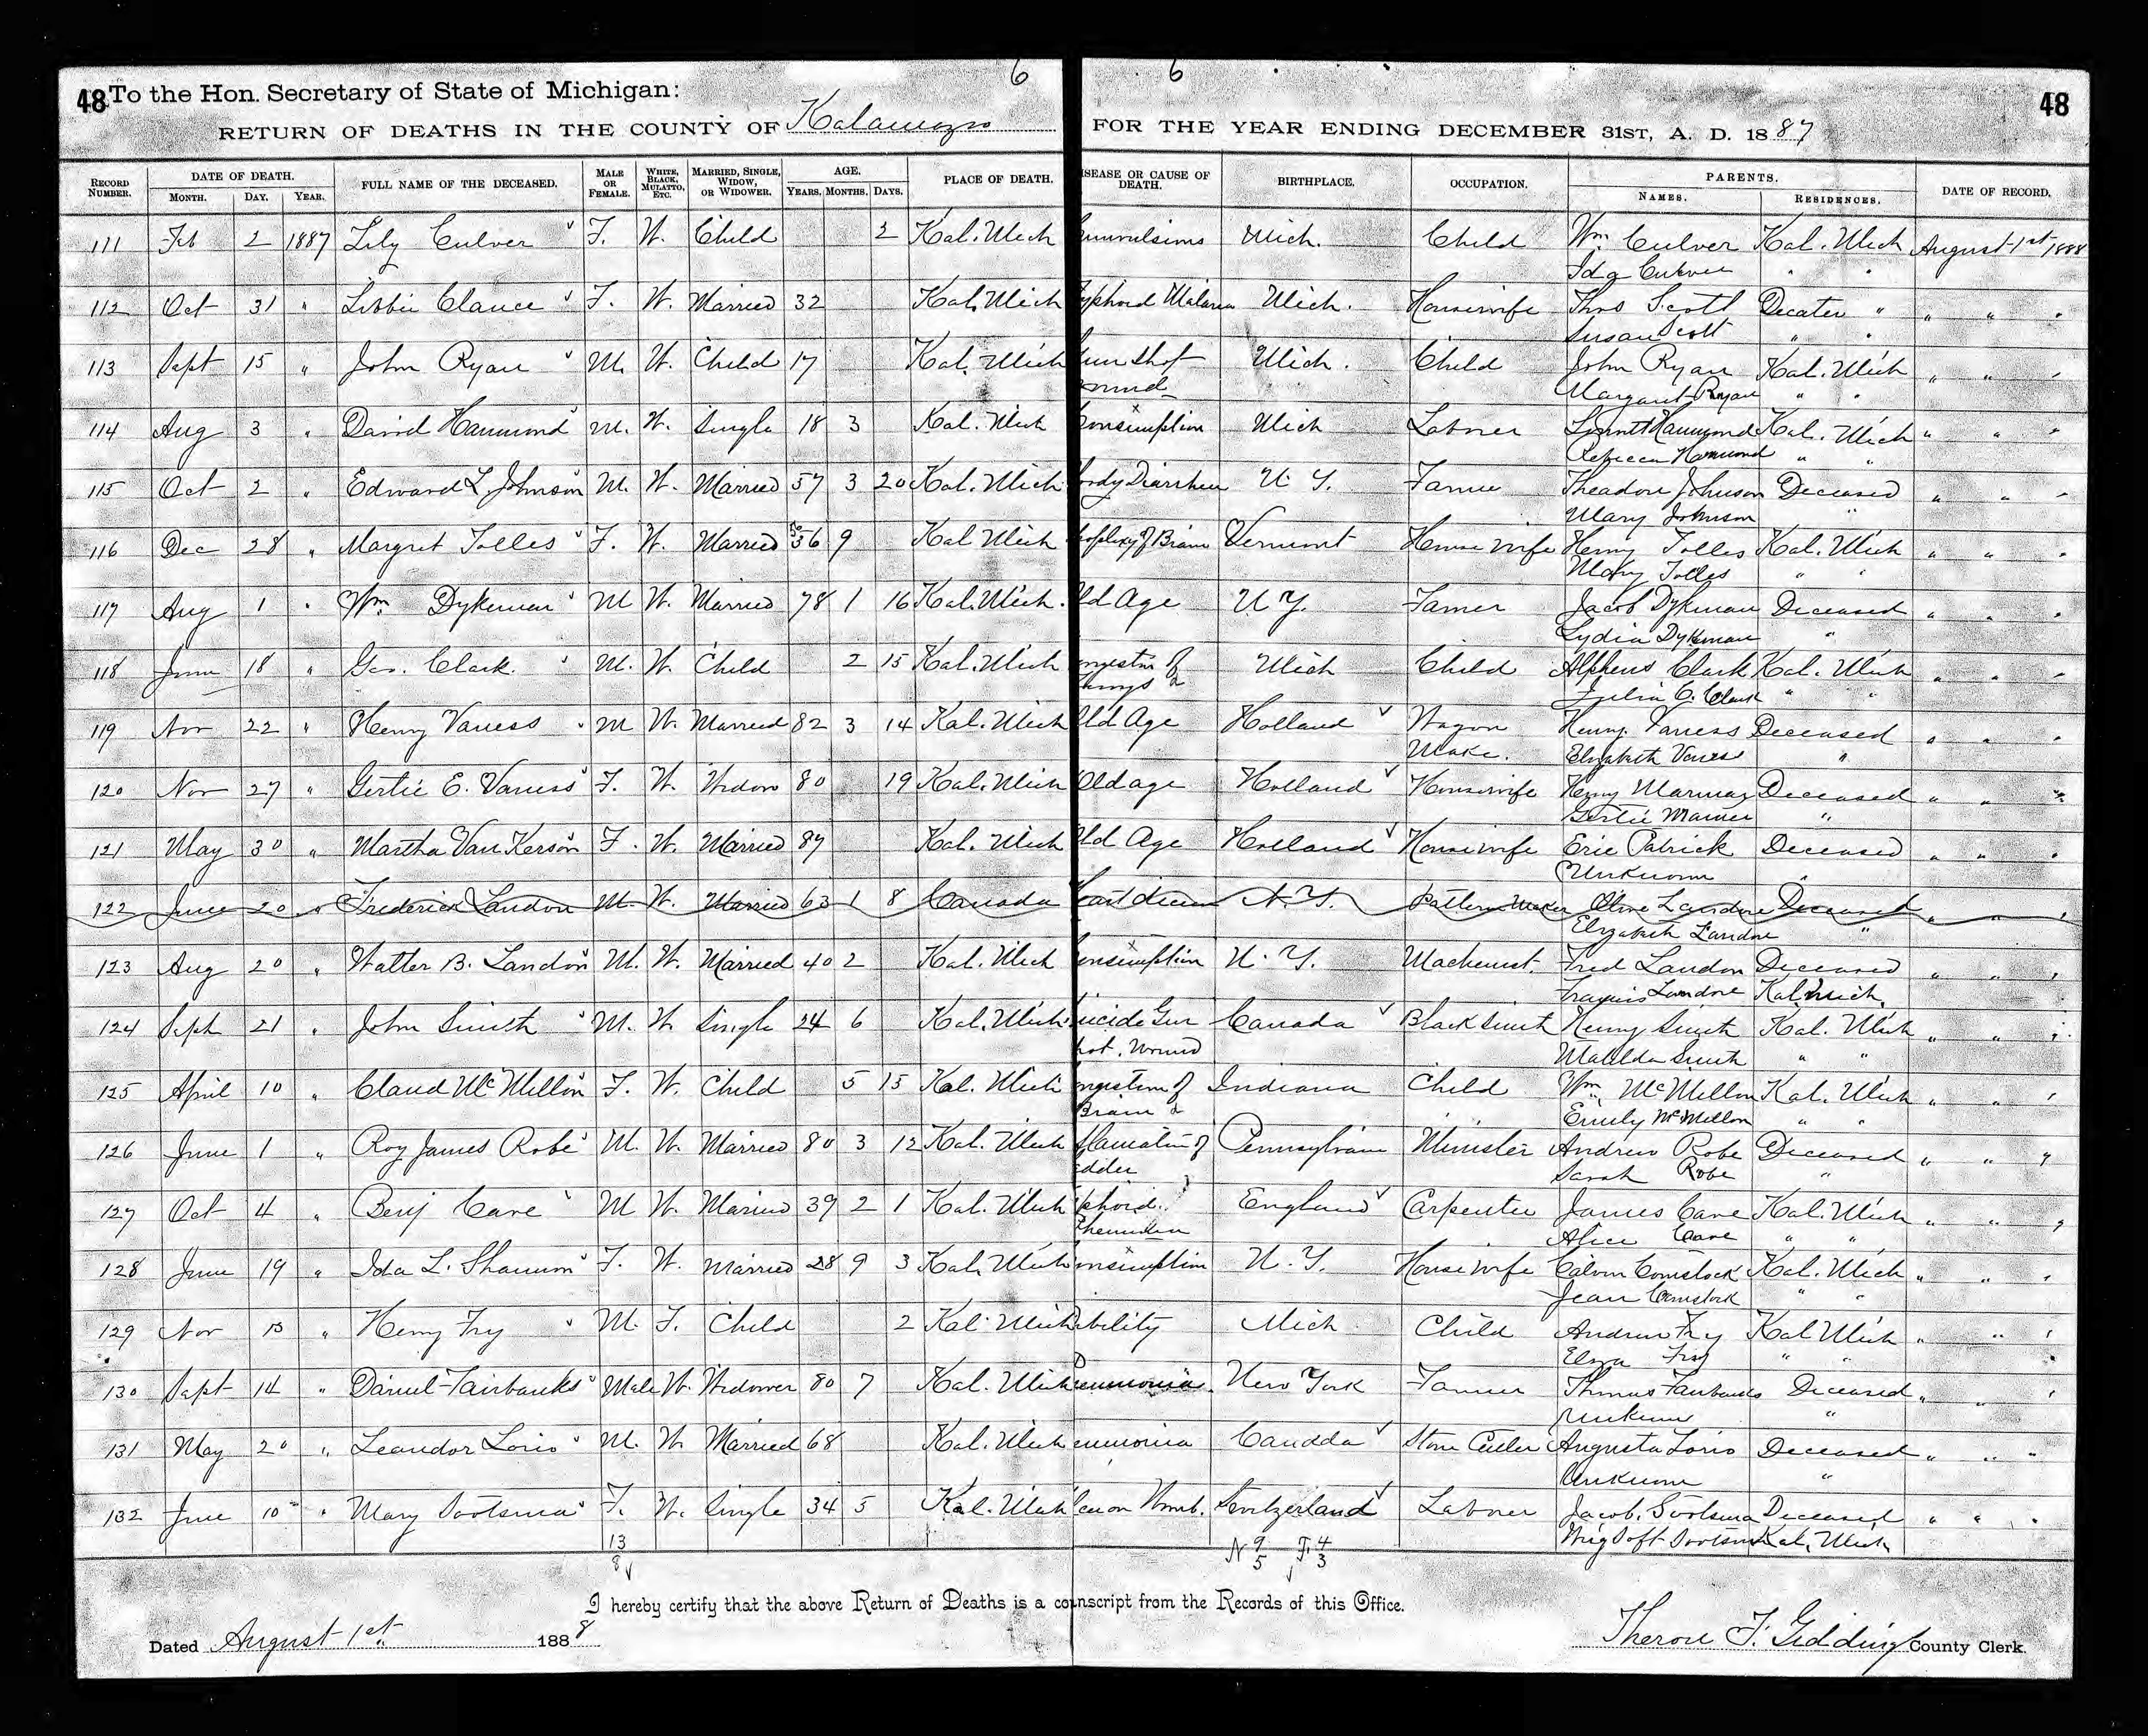 6 6
48 To the Hon. Secretary of State of Michigan: 48
RETURN OF DEATHS IN THE COUNTY OF Kalamazoo FOR THE YEAR ENDING DECEMBER 31ST, A. D. 1887
RECORD NUMBER. DATE OF DEATH. MONTH. DAY. YEAR. FULL NAME OF THE DECEASED. MALE OR FEMALE. WHITE, BLACK, MULATTO, ETC. MARRIED, SINGLE, WIDOW, OR WIDOWER. AGE. YEARS. MONTHS. DAYS. PLACE OF DEATH. ISEASE OR CAUSE OF DEATH. BIRTHPLACE. OCCUPATION. PARENTS. NAMES. RESIDENCES. DATE OF RECORD.
111 Feb 2 1887 Lily Culver F. W. Child 2 Kal. Mich onvulsions Mich. Child Wm Culver Kal. Mich August 1st 1888
Ida Culver " "
112 Oct 31 " Libbie Clance F. W. Married 32 Kal. Mich yphoid Malaria Mich. Housewife Thos Scott Decatur " " " "
Susan Scott " "
113 Sept 15 " John Ryan M. W. Child 17 Kal. Mich un shot Mich. Child John Ryan Kal. Mich " " "
ound Margaret Ryan " "
114 Aug 3 " David Hammond M. W. Single 18 3 Kal. Mich onsumption Mich Laborer Hammond Kal. Mich " " "
Rebecca Hammond " "
115 Oct 2 " Edward L. Johnson M. W. Married 57 3 20 Kal. Mich oody Diarrhea N. Y. Farmer Theadore Johnson Deceased " " "
Mary Johnson "
116 Dec 28 " Margret Tolles F. W. Married 56 9 Kal Mich oplexy of Brain Vermont House wife Henry Tolles Kal. Mich " " "
Mary Tolles " "
117 Aug 1 " Wm Dykeman M W. Married 78 1 16 Kal. Mich. ld Age N Y. Farmer Jacob Dykeman Deceased " " "
Lydia Dykeman "
118 June 18 " Geo. Clark. M. W. Child 2 15 Kal. Mich ongestion of Mich Child Alpheus Clark Kal. Mich " " "
Lungs Julia C. Clark " "
119 Nov 22 " Henry Vaness M W. Married 82 3 14 Kal. Mich Old Age Holland Wagon Henry Vaness Deceased " " "
Make. Elizabeth Vaness "
120 Nov 27 " Gertie E. Vaness F. W. Widow 80 19 Kal. Mich Old age Holland Housewife Henry Deceased " " "
Gertie "
121 May 30 " Martha Van Kerson F. W. Married 87 Kal. Mich ld Age Holland Housewife Eric Patrick Deceased " " "
Unknown "
122 June 20 " Frederick Landon M. W. Married 63 1 8 Canada eart disease N. Y. Pattern Maker Olive Landon Deceased " " "
Elizabeth Landon "
123 Aug 20 " Walter B. Landon M. W. Married 40 2 Kal. Mich onsumption N. Y. Machinest. Fred Landon Deceased " " "
Landon Kal. Mich.
124 Sept 21 " John Smith M. W. Single 24 6 Kal. Mich. uicide Gun Canada Blacksmith Henry Smith Kal. Mich " " "
hot. Wound Matilda Smith " "
125 April 10 " Claud McMellon F. W. Child 5 15 Kal. Mich ngestion of Indiana Child Wm. McMellon Kal. Mich " " "
Brain Emily McMellon " "
126 June 1 " Roy James Robe M. W. Married 80 3 12 Kal. Mich flamation of Pennsylvania Minister Andrew Robe Deceased " " "
adder Sarah Robe "
127 Oct 4 " Benj Cave M W. Married 39 2 1 Kal. Mich phoid England Carpenter James Cave Kal. Mich " " "
Alice Cave " "
128 June 19 " Ida L. Shannon F. W. Married 28 9 3 Kal. Mich onsumption N. Y. Housewife Calvin Comstock Kal. Mich " " "
Jean Comstock " "
129 Nov 13 " Henry Fry M. F. Child 2 Kal Mich bility Mich Child Andrew Fry Kal Mich " " "
Fry " "
130 Sept 14 " Daniel Fairbanks Male W. Widower 80 7 Kal. Mich neumonia New York Farmer Thomas Fairbanks Deceased " " "
Unknown "
131 May 20 " Leandor Lorio M. W. Married 68 Kal. Mich eumonia Canada Stone Cutter Augusta Lorio Deceased " " "
Unknown "
132 June 10 " Mary Sootsma F. W. Single 34 5 Kal. Mich Womb. Switzerland Laborer Jacob. Sootsma Deceased " " "
Sootsma Kal. Mich
13 N 9 F. 4
8 5 3
I hereby certify that the above Return of Deaths is a co nscript from the Records of this Office.
Dated August 1st 1888 Theron F. Giddings County Clerk.